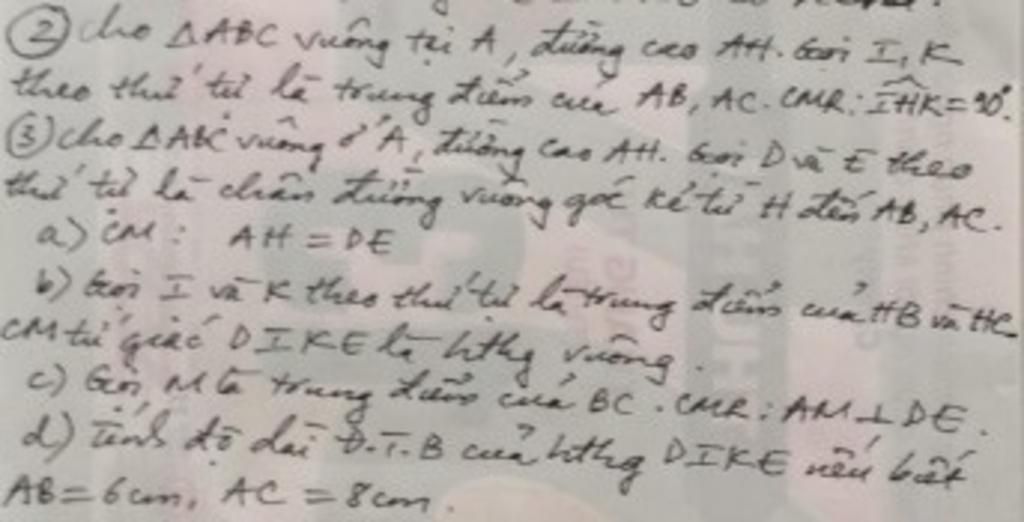 ② Cho △ABC vuông tại A, đường cao AH. Gọi I, K
theo thứ tự là trung điểm của AB, AC. CMR: IHK = 90°.
③ Cho △ABC vuông ở A, đường cao AH. Gọi D và E theo
thứ tự là chân đường vuông góc kẻ từ H đến AB, AC.
a) CM: AH = DE
b) Gọi I và K theo thứ tự là trung điểm của HB và HC
CM tứ giác DIKE là hthg vuông.
c) Gọi M là trung điểm của BC. CMR: AM ⊥ DE.
d) Tính độ dài Đ.T.B của hthg DIKE nếu biết
AB = 6cm, AC = 8cm.